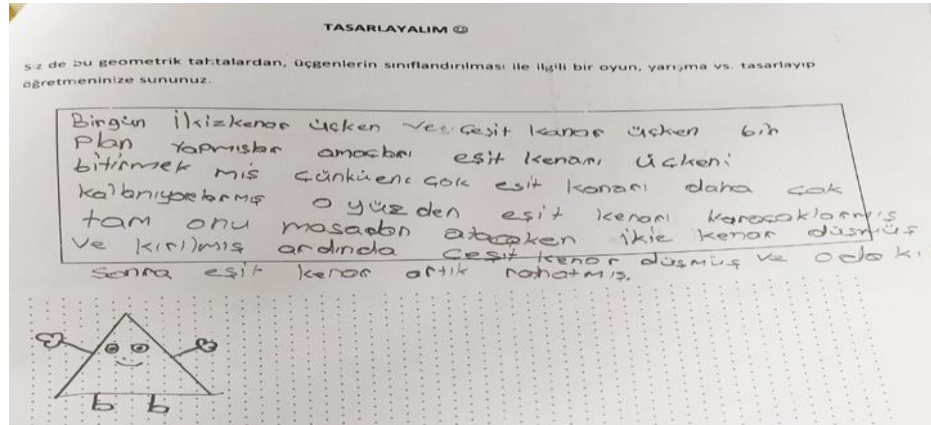 TASARLAYALIM ☺
Siz de bu geometrik tahtalardan, üçgenlerin sınıflandırılması ile ilgili bir oyun, yarışma vs. tasarlayıp
öğretmeninize sununuz.
Birgün ikizkenar üçken ve çeşit kenar üçken bir
plan yapmışlar amaçları eşit kenarı üçkeni
bitirmek miş çünkü en çok eşit konarı daha çok
kullanıyorlarmış o yüzden eşit kenarı
tam onu masadan atacaken ikiz kenar düşmüş
ve kırılmış ardında çeşit kenar düşmüş ve oda kı
sonra eşit kenar artık rahatmış.